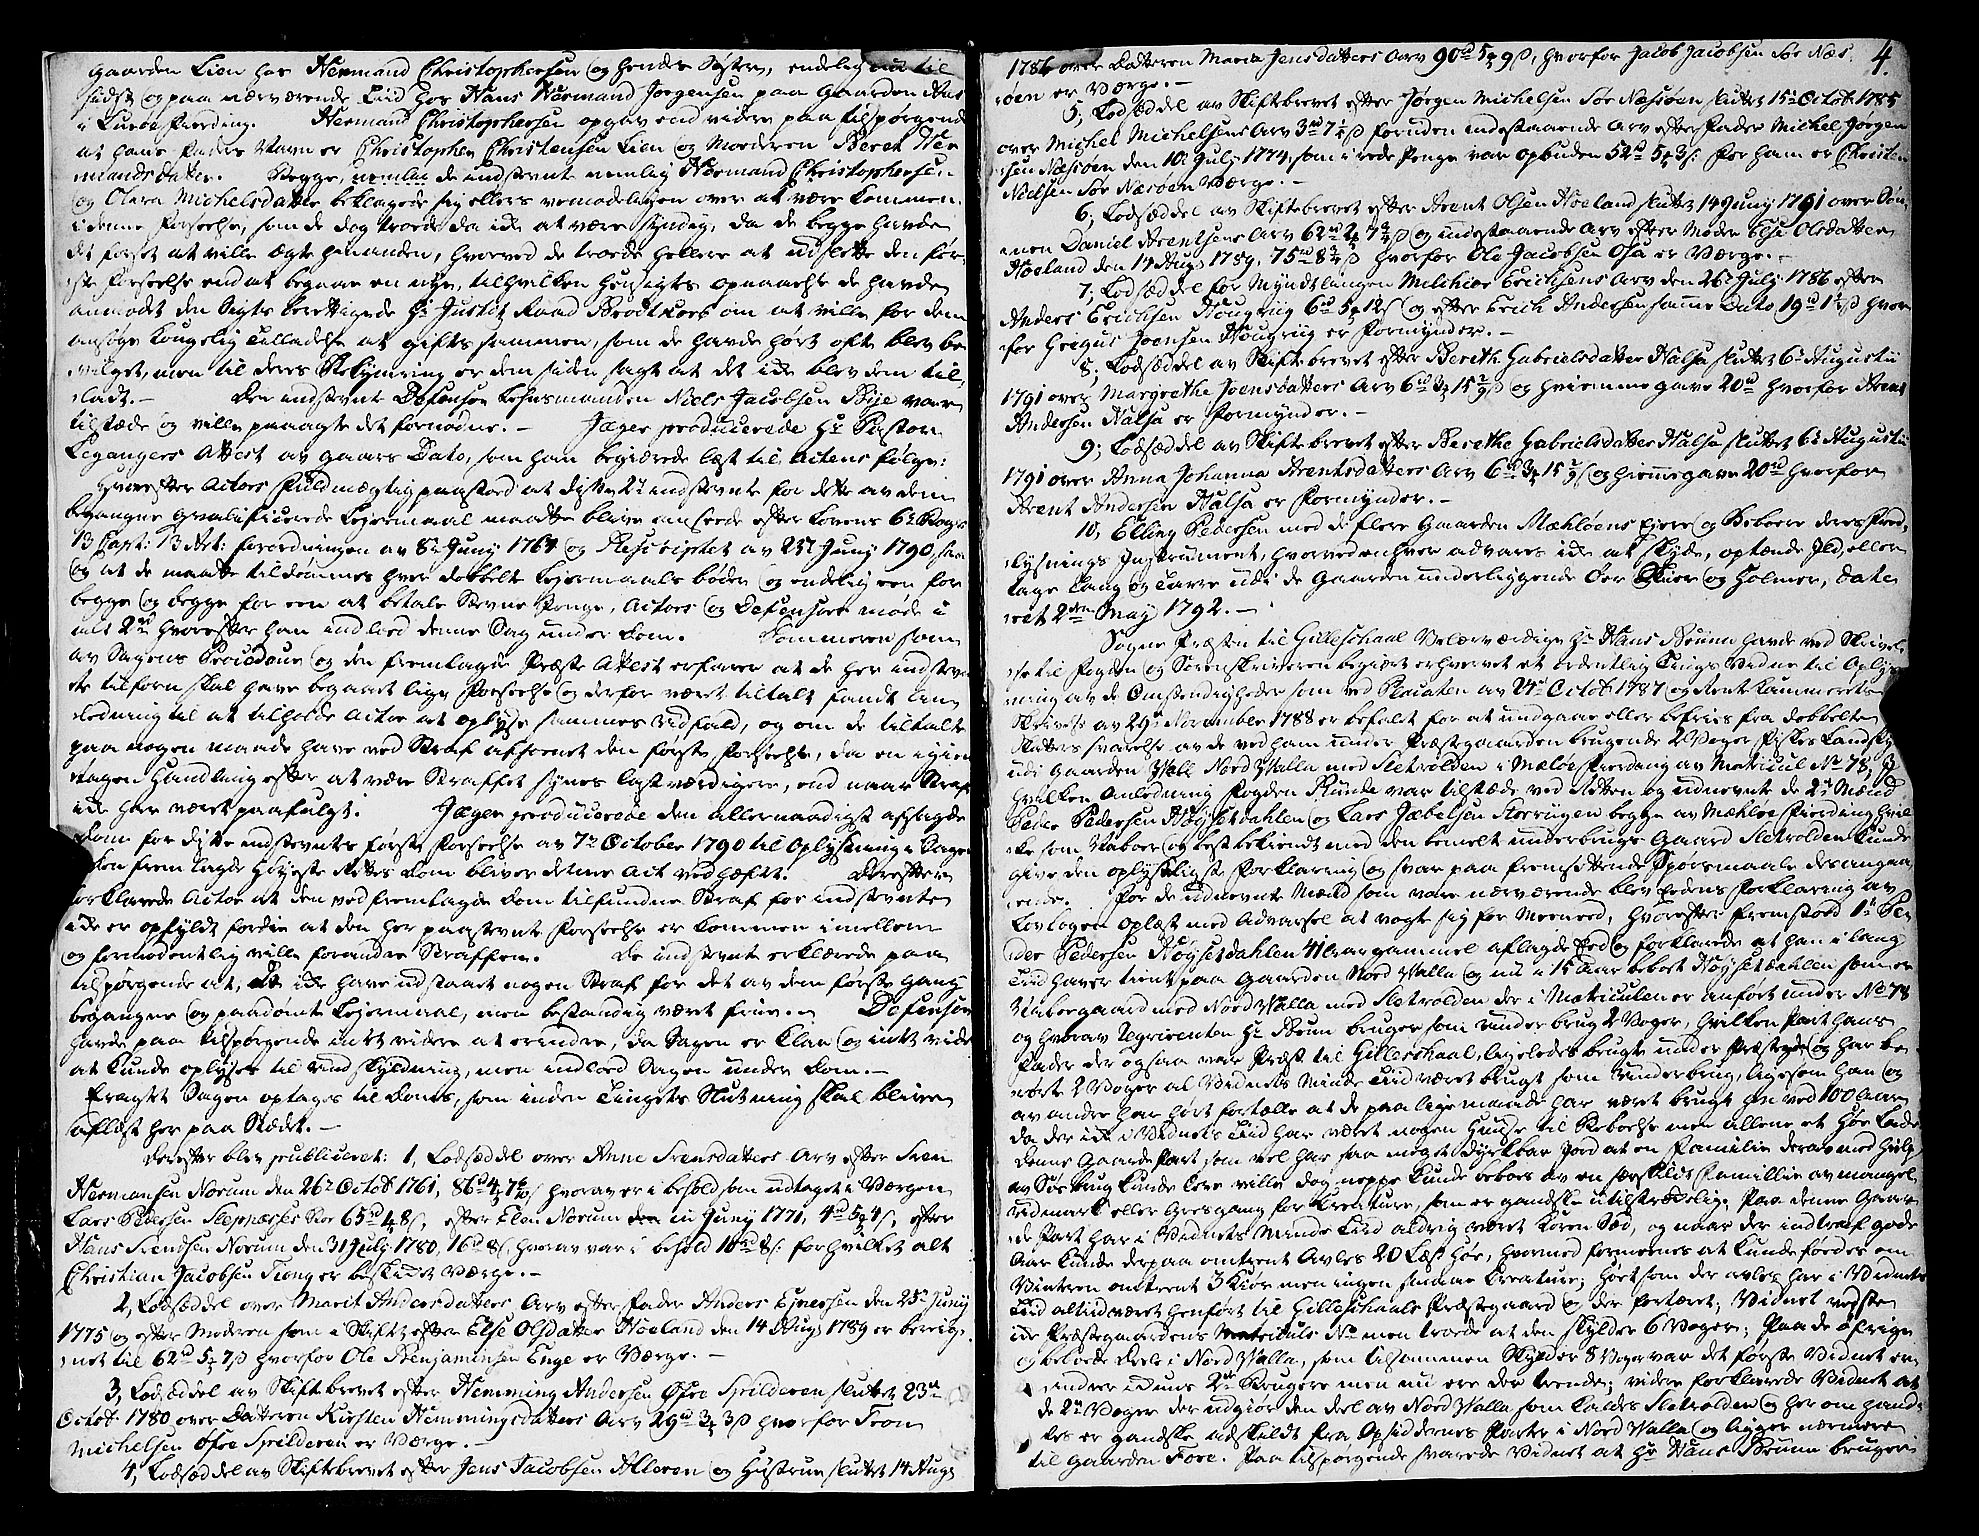 gaarden Lien hos Hermand Christophersen og hendes Søster, endelig nu til
sidst og paa nærværende Tiid hos Hans Hermand Jørgensen paa Gaarden Aas
i Luroe fierding. Hermand Christophersen opgav end videre paa tilspørgende
at hans Faders Navn er Christopher Christensen Lien og Moderen Beret Her
mandsdatter. Begge, nemlig de indstevnte nemlig Hermand Christophersen
og Olava Michelsdatter beklagede sig ellers vemodeligen over at være kommen
i denne forseelse, som de dog troede da ikke at være syndig, da de begge havde
det forsæt at ville ægte hinanden, hvorved de troede hellere at udslette den før-
ste forseelse end at begaae en nye, til hvilken Hensigts opnaaelse de havde
anmodet den Sigts berettigede Hr Justits Raad Brodtkorb om at ville for dem
ansøge Kongelig Tilladelse at giftes sammen, som de havde hørt ofte blev be
vilget, men til deres Bekymring er dem siden sagt at det ikke blev dem til-
ladt. Den indstevnte Defensor Lehnsmanden Niels Jacobsen Bije var
tilstæde og ville paaagte det fornødne. Jæger producerede Hr Pastor
Legangers Attest av gaars Dato, som han begiærede læst til Actens følge:
Hvorefter Actors fuldmægtig paastod at diske 2de indstevnte for dette av dem
begangne qvalificerede Leiermaal maatte blive ansede efter Lovens 6te Bogs
13 Capt: 13 Art: forordningen av 8de Juny 1767 og Rescriptet av 25de Juny 1790, saa
og at de maatte tildømmes hver dobbelte Leiermaals bøder og endelig een for
begge og begge for een at betale Stevne Penge, Actors og Defensors møde i
alt 2rd hvorefter han indlod denne Sag under Dom. Dommeren som
av Sagens Procedure og den fremlagde Præste Attest erfarer at de her indstevn
te tilforn skal have begaaet lige forseelse og derfor været tiltalt fandt An
ledning til at tilholde Actor at oplyse sammes Udfald, og om de tiltalte
paa nogen maade have ved Straf afsonet den første forseelse, da en igien
tagen Handling efter at være Straffet synes lastværdigere, end naar Straf
ikke har været paafulgt. Jæger producerede den allernaadigst afsagde
Dom for disse indstevntes første forseelse av 7de October 1790 til Oplysning i Sagen
den fremlagde Høyeste Rettes Dom bliver denne Act vedhæftet. Derefter
forklarede Actor at den ved fremlagde Dom tilfundne Straf for indstevnte
ikke er opfyldt fordie at den her paastevnte forseelse er kommen imellem
og formodentlig ville forandre Straffen. De indstevnte erklærede paa
tilspørgende at, de ikke have udstaaet nogen Straf for det av dem første gang
begangne og paadømte Leiermaal, men bestandig været frie. Defensor
havde paa tilspørgende intet videre at erindre, da Sagen er klar og intet vide
at kunde oplyses til undskyldning, men indlod Sagen under Dom.
Eragtet Sagen optages til Doms, som inden Tingets Slutning skal blive
aflæst her paa Stædet.
Derefter blev publiceret: 1, Lodseddel over Anne Svensdatters Arv efter Sven
Hermansen Norum den 26de Octob 1761, 86rd 4 7 hvorav er i behold som udtaget i Værgen
Lars Pedersen Slepnæses Boe 65rd 8s, efter Elen Norum den 11 Juny 1771, 4rd 5 4s, efter
Hans Svendsen Norum, den 31 July 1780, 16rd 8s hvorav var i behold 10rd 8s: for hvilket alt
Christian Jacobsen Tiong er beskikket Værge.
2, Lodseddel over Marit Andersdatters Arv efter Fader Anders Ejnersen den 25de Juny
1775 og efter Moderen som i Skiftet efter Else Olsdatter Høeland den 14 Aug 1789 er bereig-
net til 62rd 5 7s hvorfor Ole Benjaminsen Enge er Værge.
3, Lodseddel av Skiftebrevet efter Hemming Andersen Øfre Spilderen sluttet 23de
Octob 1780 over Datteren Kirsten Hemmingsdatters Arv 29rd 3 3s hvorfor Tron
Michelsen Øfre Spilderen er Værge.
4, Lodseddel av Skiftebrevet efter Jens Jacobsen Alleren og Hustrue sluttet 14 Aug
4.
1786 over Datteren Maria Jensdatters Arv 90rd 5 9s, hvorfor Jacob Jacobsen Sør Næs-
øen er Værge.
5, Lodseddel av Skiftebrevet efter Jørgen Michelsen Sør Næssøen sluttet 15de Octob 1785
over Michel Michelsens Arv 3rd 7 s foruden indestaaende Arv efter Fader Michel Jørgen
sen Næssøen den 10de July 1774, som i rede Penge var opbuden 52rd 5 3s: for ham er Christen
Nielsen Sør Næsøen Værge.
6, Lodseddel av Skiftebrevet efter Arent Olsen Høeland sluttet 14 Juny 1791 over Søn-
nen Daniel Arentsens Arv 62rd 2 7 s og indestaaende Arv efter Moder Else Olsdatter
Høeland den 14 Aug 1789, 75rd 8 s hvorfor Ole Jacobsen Osa er Værge.
7, Lodseddel for Myndtlingen Milchior Erichsens Arv den 26de July 1786 efter
Anders Erichsen Hougriig 6rd 5 12s og efter Erich Andersen samme Dato, 19rd 1 s hvor
for Gregus Joensen Hougriig er Formynder.
8, Lodseddel av Skiftebrevet efter Bereth Gabrielsdatter Halsa sluttet 6te Augustii
1791 over Margrethe Joensdatters Arv 6rd 15 s og hiemmegave 20rd hvorfor Arent
Andersen Halsa er Formynder.
9, Lodseddel av Skiftebrevet efter Berethe Gabrielsdatter Halsa sluttet 6te Augustii
1791 over Anna Johanna Arentsdatters Arv 6rd 3 15 s og hiemmegave 20rd hvorfor
Arent Andersen Halsa er Formynder.
10, Elling Pedersen med de flere Gaarden Mæhløens Ejere og Beboere deres Fred-
lysnings Instrument, hvorved enhver advares ikke at skyde, optænde Ild, eller
tage Tang og Tarre udi de Gaarden underliggende Øer Skier og Holmer, date
ret 2den May 1792.
Sogne Præsten til Gilleschaal Velærværdige Hr Hans Bruun havde ved Skrivel
se til Fogden og Sorenskriveren begiært erhvervet et ordentlig Tings Vidne til Oplys
ning av de Omstændigheder som ved Placaten av 24de Octob 1787 og Rente Kammerets
Skrivelse av 29de November 1788 er befalet for at undgaae eller befries fra dobbelte
Skatters svarelse av de ved ham under Præstgaarden brugende 2 Voger fiskes Landskyld
udi Gaarden Vall Nord Valla med Sletvolden i Mæløe fierding av Matricul No 78, i
hvilken Anledning Fogden Bunde var tilstæde ved Retten og udnevnte de 2de Mænd
Peder Pedersen Høysetdahlen og Lars Jæbelsen Storvigen begge av Mæhløe fierding hvil-
ke som Naboer og best bekiendt med den bemelt underbrugs Gaard Sletvolden kunde
give den oplyseligste forklaring og svar paa fremsettende Spørsmaale desangaa
ende. For de udnevnte Mænd som vare nærværende blev Eedens forklaring av
Lovbogen oplæst med Advarsel at vogte sig for Meeneed, hvorefter fremstoed 1te Pe-
der Pedersen Høysetdahlen 41 Aar gammel aflagde Eed og forklarede at han i lang
Tiid haver tient paa Gaarden Nord Valla og nu i 15 Aar beboet Høysetdahlen som er
Nabogaard med Nord Walla med Sletvolden der i Matriculen er anført under No 78
og hvorav Reqvirenten Hr Bruun bruger som underbrug 2 Voger, hvilken Part hans
Fader der ogsaa var Præst til Gilleschaal, ligeledes brugte under Præstegd og har be
rørte 2 Voger al Vidnets Minde Tiid været brugt som underbrug, ligesom han og
av andre har hørt fortælle at de paa lige maade har været brugt hen ved 100 Aar
da der ikke i Vidnets Tiid har været nogen Huuse til Beboelse men allene et Høe Lade
denne Gaarde Part som vel har saa meget dyrkbar Jord at en Familie derav med hielp
av Søebrug kunde leve ville dog neppe kunde beboes av en særskildt Familie av mangel
Udmark eller Græsgang for Creature, som er gandske utilstrekkelig. Paa denne Gaar
de Part har i Vidnets Minde Tiid aldrig været Koren Sæd, og naar der indtraf gode
Aar kunde derpaa omtrent Avles 20 Læs Høe, hvormed formeenes at kunde føedes om
Vinteren omtrent 3 Kiør men ingen smaae Creature; Høet som der avles har i Vidnets
Tiid altid været henført til Gilleschaals Præstegaard og der fortæret; Vidnet vidste
ikke Præstegaardens Matriculs No men troede at den skylder 6 Voger; Paa de øfrige
og beboede Deele i Nord Valla, som tilsammen skylder 8 Voger var det første Vidnet er-
indrer iduns 2de Brugere men nu ere der trende; videre forklarede Vidnet at
de 2de Voger der udgiør den deel av Nord Valla som kaldes Sletvolden og her om hand-
les er gandske adskildt fra Opsiddernes Parter i Nord Valla og ligger nærmere
til Gaarden Fore. Paa tilspørgende svarede Vidnet at Hr Hans Bruun bruger